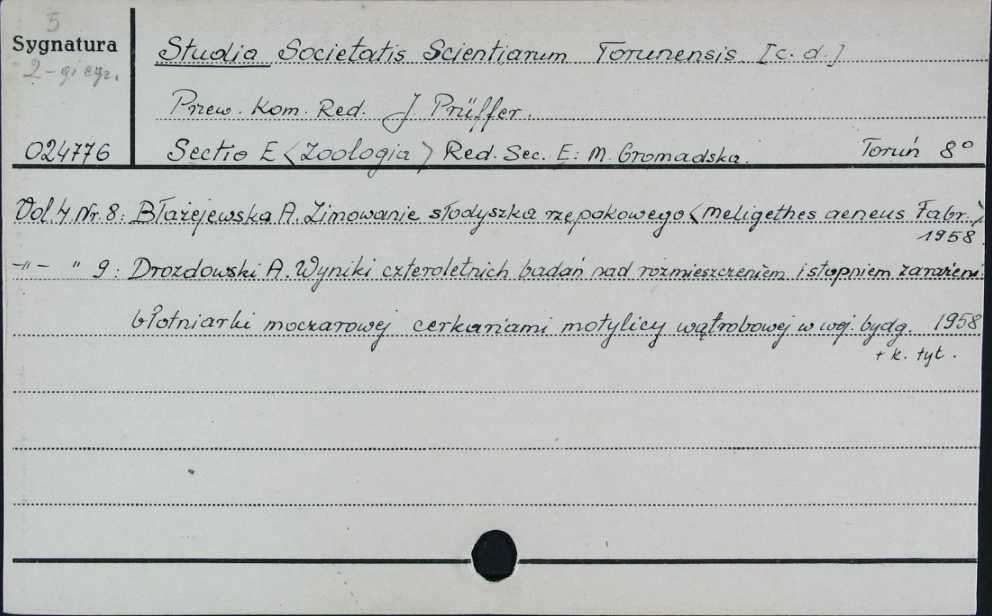 5
Sygnatura
2-gi egz.
024776
Studia Societatis Scientiarum Torunensis [c. d.]
Przew. Kom. Red. J. Prüffer.
Sectio E <Zoologia> Red. Sec. E: M. Gromadska. Toruń 8°
Vol. 4 Nr. 8: Błażejewska A. Zimowanie słodyszka rzepakowego <Meligethes aeneus Fabr.>
1958.
-"- " 9: Drozdowski A. Wyniki czteroletnich badań nad rozmieszczeniem i stopniem zarażeni
błotniarki moczarowej cerkariami motylicy wątrobowej w woj. bydg. 1958
+ k. tyt.